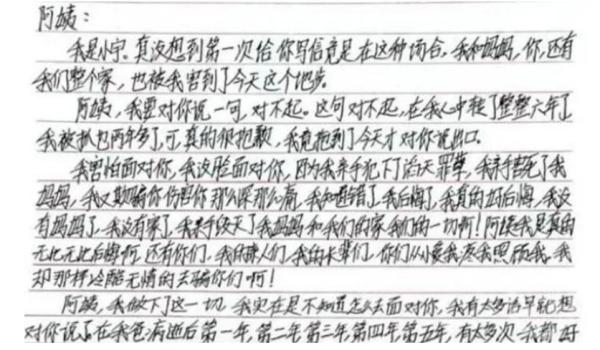 阿姨:
我是小宇.真没想到第一次给你写信竟是在这种场合.我和妈妈,你,还有
我们整个家,也被我害到了今天这个地步.
阿姨,我要对你说一句,对不起。这句对不起,在我心中整整六年了
我被抓也两年多了,可真的很抱歉,我竟拖到了今天才对你说出口.
我害怕面对你,我没脸面对你,因为我亲手犯下了滔天罪孽,我亲手害死了我
妈妈,我又欺骗你伤害你那么深那么痛,我知道错了,我后悔了,我真的好后悔,我没
有妈妈了,我没有家了,我亲手毁灭了我妈妈和我们的家我们的一切啊!阿姨我是真的
无比无比后悔啊.还有你们.我的亲人们.我的长辈们.你们从小爱我,疼我照顾我.我
却那样冷酷无情的去骗你们啊!
阿姨,我做下了这一切,我实在是不知道怎么去面对你,我有太多话早就想
对你说了.在我爸病逝后第一年,第二年第三年第四年第五年,有太多次我都好